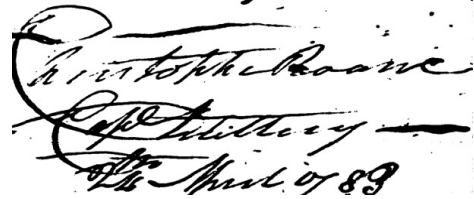 Christophe Roane
Capt Artillery
24th April 1783